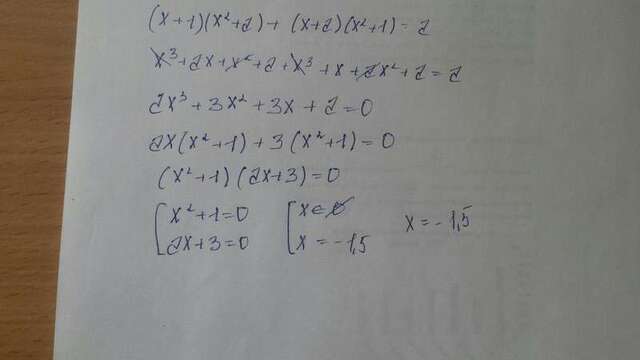 (x+1)(x²+2)+(x+2)(x²+1)=2
x³+2x+x²+2+x³+x+2x²+2=2
2x³+3x²+3x+2=0
2x(x²+1)+3(x²+1)=0
(x²+1)(2x+3)=0
[x²+1=0 [x∈∅ x=-1,5
2x+3=0 x=-1,5